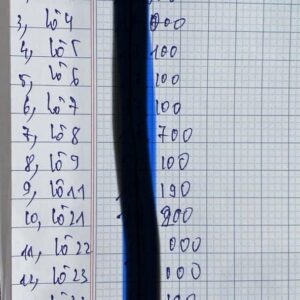 3, lô 4 000
4, lô 5 100
5, lô 6 100
6, lô 7 100
7, lô 8 700
8, lô 9 100
9, lô 11 190
10, lô 21 200
11, lô 22 000
12, lô 23 000